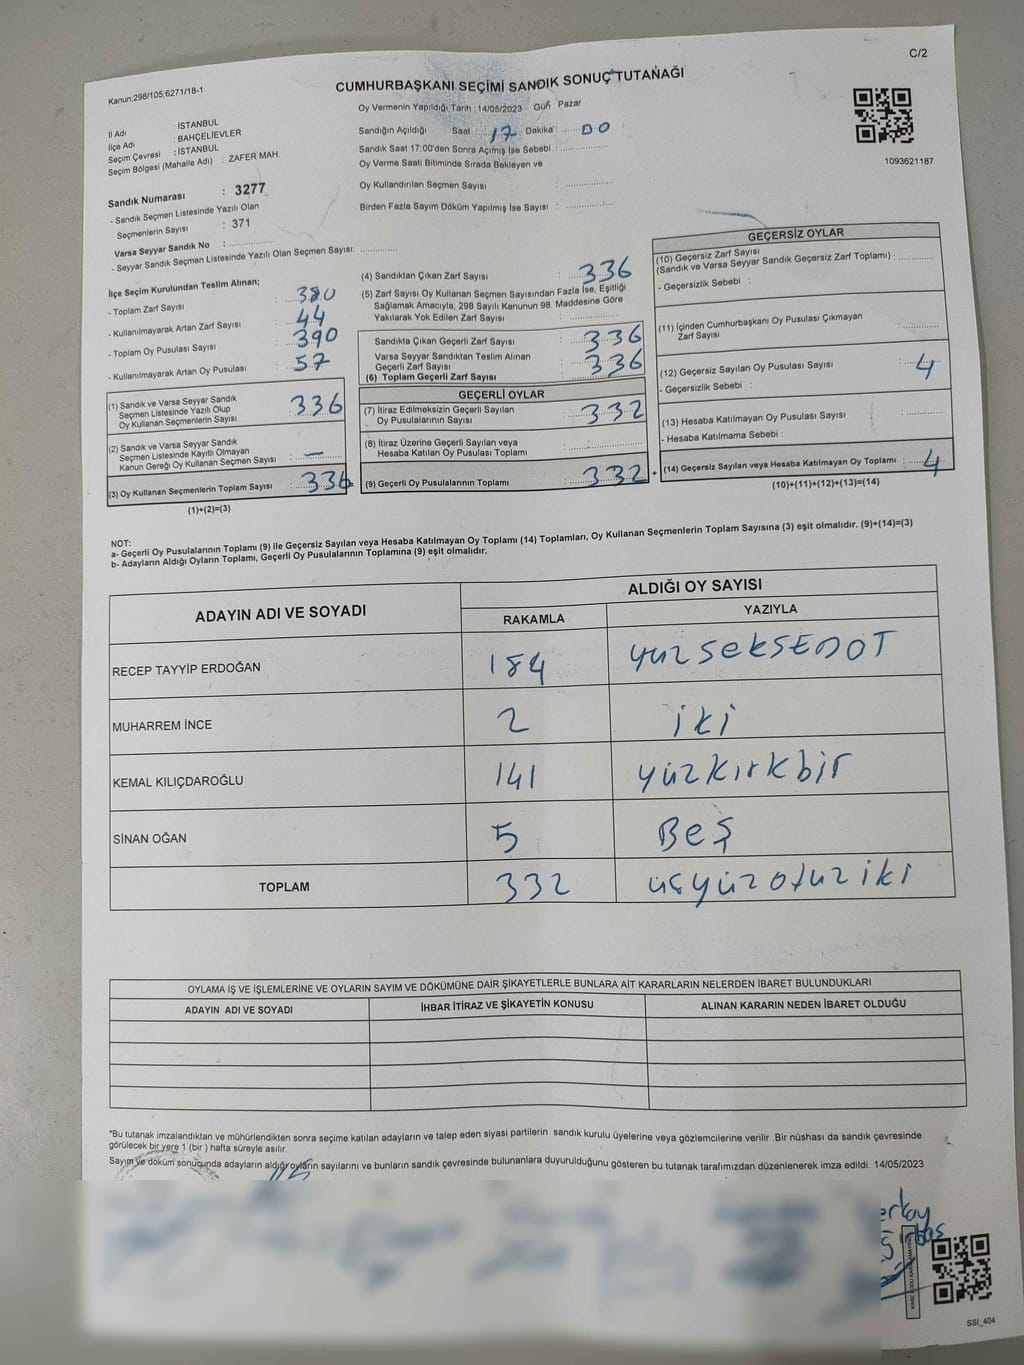 C/2
Kanun:298/105;6271/18-1
CUMHURBAŞKANI SEÇİMİ SANDIK SONUÇ TUTANAĞI
Oy Vermenin Yapıldığı Tarih : 14/05/2023 Gün : Pazar
İl Adı : İSTANBUL
İlçe Adı : BAHÇELİEVLER
Seçim Çevresi : İSTANBUL
Seçim Bölgesi (Mahalle Adı) : ZAFER MAH.
Sandığın Açıldığı Saat : 17 Dakika : 00
Sandık Saat 17:00'den Sonra Açımış İse Sebebi :
Oy Verme Saati Bitiminde Sırada Bekleyen ve
Oy Kullandırılan Seçmen Sayısı :
Birden Fazla Sayım Döküm Yapılmış İse Sayısı :
1093621187
Sandık Numarası : 3277
- Sandık Seçmen Listesinde Yazılı Olan
Seçmenlerin Sayısı : 371
Varsa Seyyar Sandık No :
- Seyyar Sandık Seçmen Listesinde Yazılı Olan Seçmen Sayısı:
İlçe Seçim Kurulundan Teslim Alınan;
- Toplam Zarf Sayısı : 380
- Kullanılmayarak Artan Zarf Sayısı : 44
- Toplam Oy Pusulası Sayısı : 390
- Kullanılmayarak Artan Oy Pusulası : 57
(1) Sandık ve Varsa Seyyar Sandık
Seçmen Listesinde Yazılı Olup
Oy Kullanan Seçmenlerin Sayısı : 336
(2) Sandık ve Varsa Seyyar Sandık
Seçmen Listesinde Kayıtlı Olmayan
Kanun Gereği Oy Kullanan Seçmen Sayısı : —
(3) Oy Kullanan Seçmenlerin Toplam Sayısı : 336
(1)+(2)=(3)
(4) Sandıktan Çıkan Zarf Sayısı : 336
(5) Zarf Sayısı Oy Kullanan Seçmen Sayısından Fazla İse, Eşitliği
Sağlamak Amacıyla, 298 Sayılı Kanunun 98. Maddesine Göre
Yakılarak Yok Edilen Zarf Sayısı :
Sandıkta Çıkan Geçerli Zarf Sayısı : 336
Varsa Seyyar Sandıktan Teslim Alınan
Geçerli Zarf Sayısı : 336
(6) Toplam Geçerli Zarf Sayısı :
GEÇERLİ OYLAR
(7) İtiraz Edilmeksizin Geçerli Sayılan
Oy Pusulalarının Sayısı : 332
(8) İtiraz Üzerine Geçerli Sayılan veya
Hesaba Katılan Oy Pusulası Toplamı :
(9) Geçerli Oy Pusulalarının Toplamı : 332
GEÇERSİZ OYLAR
(10) Geçersiz Zarf Sayısı
(Sandık ve Varsa Seyyar Sandık Geçersiz Zarf Toplamı) :
- Geçersizlik Sebebi :
(11) İçinden Cumhurbaşkanı Oy Pusulası Çıkmayan
Zarf Sayısı :
(12) Geçersiz Sayılan Oy Pusulası Sayısı : 4
- Geçersizlik Sebebi :
(13) Hesaba Katılmayan Oy Pusulası Sayısı :
- Hesaba Katılmama Sebebi :
+ (14) Geçersiz Sayılan veya Hesaba Katılmayan Oy Toplamı : 4
(10)+(11)+(12)+(13)=(14)
NOT:
a- Geçerli Oy Pusulalarının Toplamı (9) ile Geçersiz Sayılan veya Hesaba Katılmayan Oy Toplamı (14) Toplamları, Oy Kullanan Seçmenlerin Toplam Sayısına (3) eşit olmalıdır. (9)+(14)=(3)
b- Adayların Aldığı Oyların Toplamı, Geçerli Oy Pusulalarının Toplamına (9) eşit olmalıdır.
ADAYIN ADI VE SOYADI
ALDIĞI OY SAYISI
RAKAMLA YAZIYLA
RECEP TAYYİP ERDOĞAN 184 yüzSeKSEnDÖT
MUHARREM İNCE 2 iki
KEMAL KILIÇDAROĞLU 141 yüzkırkbir
SİNAN OĞAN 5 Beş
TOPLAM 332 üçyüzotuziki
OYLAMA İŞ VE İŞLEMLERİNE VE OYLARIN SAYIM VE DÖKÜMÜNE DAİR ŞİKAYETLERLE BUNLARA AİT KARARLARIN NELERDEN İBARET BULUNDUKLARI
ADAYIN ADI VE SOYADI İHBAR İTİRAZ VE ŞİKAYETİN KONUSU ALINAN KARARIN NEDEN İBARET OLDUĞU
*Bu tutanak imzalandıktan ve mühürlendikten sonra seçime katılan adayların ve talep eden siyasi partilerin sandık kurulu üyelerine veya gözlemcilerine verilir .Bir nüshası da sandık çevresinde
görülecek bir yere 1 (bir ) hafta süreyle asılır.
Sayım ve döküm sonucunda adayların aldığı oyların sayılarını ve bunların sandık çevresinde bulunanlara duyurulduğunu gösteren bu tutanak tarafımızdan düzenlenerek imza edildi. 14/05/2023
SSI_404